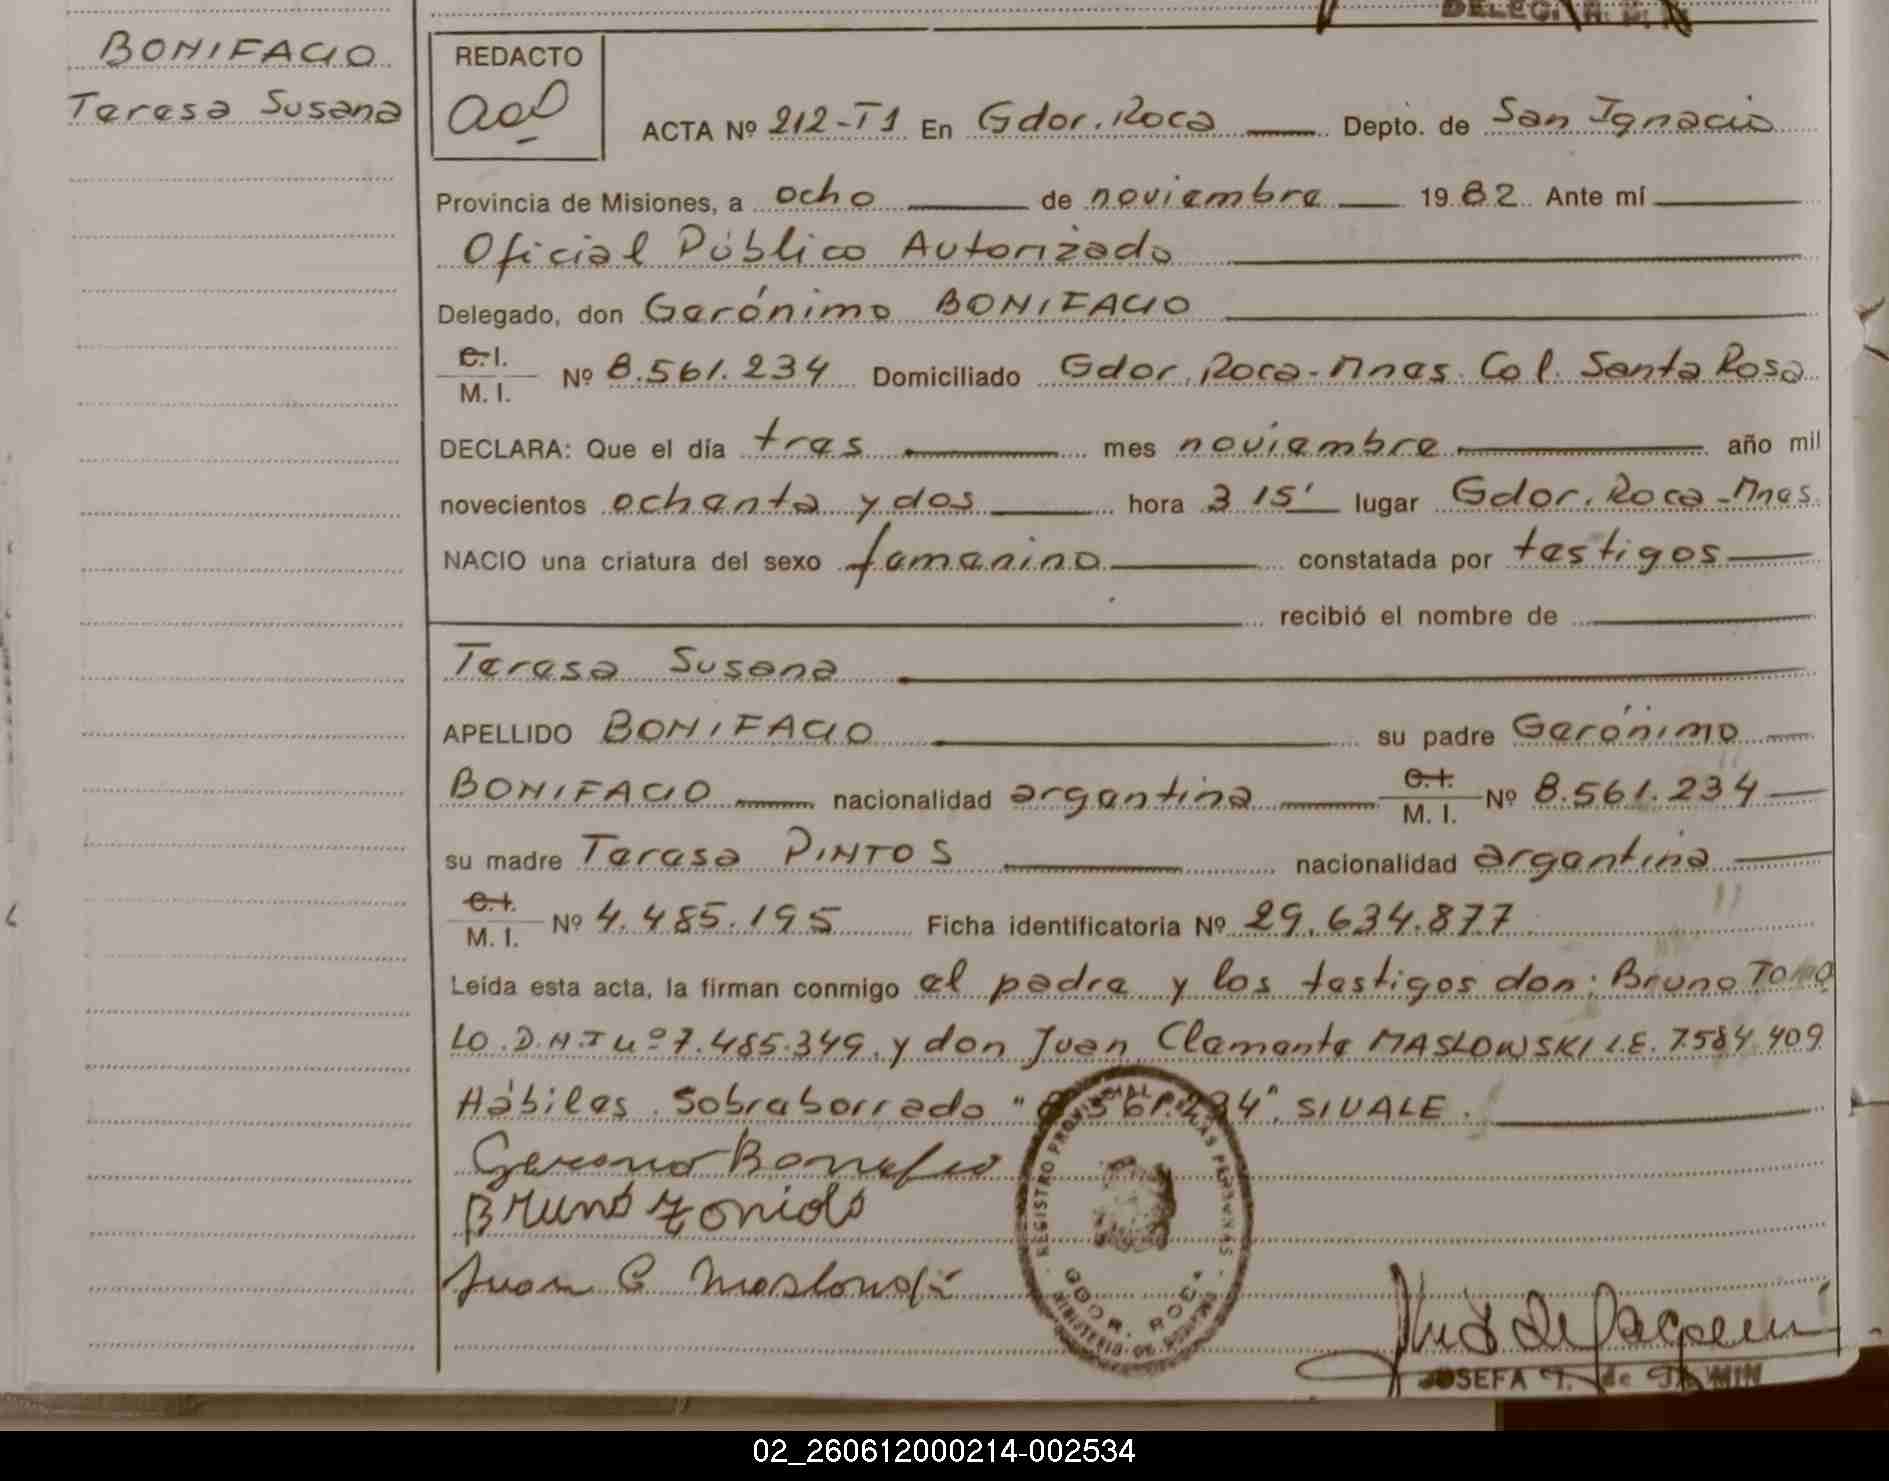 DELEG.
BONIFACIO
Teresa Susana
REDACTO
ACTA Nº 212-T1 En Gdor. Roca Depto. de San Ignacio
Provincia de Misiones, a ocho de noviembre 1982. Ante mí
Oficial Público Autorizado
Delegado, don Gerónimo BONIFACIO
C.I.
M. I. Nº 8.561.234 Domiciliado Gdor. Roca-Mnes. Col. Santa Rosa
DECLARA: Que el día tres mes noviembre año mil
novecientos ochenta y dos hora 3 15' lugar Gdor. Roca-Mnes.
NACIO una criatura del sexo femenino constatada por testigos
recibió el nombre de
Teresa Susana
APELLIDO BONIFACIO su padre Gerónimo
BONIFACIO nacionalidad argentina C.I. M. I. Nº 8.561.234
su madre Teresa PINTOS nacionalidad argentina
C.I.
M. I. Nº 4.485.195 Ficha identificatoria Nº 29.634.877
Leída esta acta, la firman conmigo el padre y los testigos don: Bruno
LO. D.N.I nº 7.485.349. y don Juan Clemente MASLOWSKI L.E. 7.584.409
Hábiles. Sobreborrado "8.561.234". SI VALE.
REGISTRO PROVINCIAL DE LAS PERSONAS
GDOR. ROCA
MINISTERIO DE GOBIERNO
Bruno
Juan C Maslowski
JOSEFA T. de
02_260612000214-002534